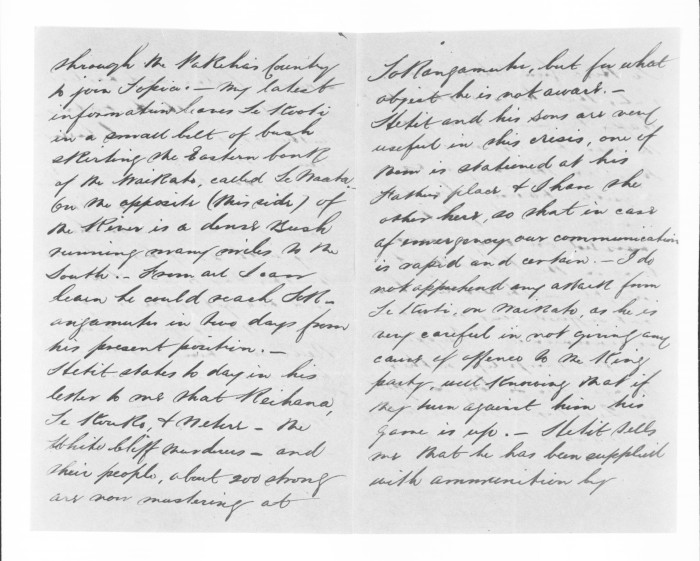 through the NaKehas Country
to join Topia. — My latest
information leaves Te Kooti
in a small belt of bush
skirting the Eastern bank
of the Waikato, called Te Waata.
On the opposite (this side) of
the River is a dense Bush
running many miles to the
South. — From all I can
learn he could reach ToR-
angamutu in two days from
his present position. —
Hetit states to day in his
letter to me that Reihana,
Te Kouka, & Netere — the
White Cliff murderers — and
their people, about 200 strong
are now mustering at
ToRangamutu, but for what
object he is not aware. —
Hetit and his sons are very
useful in this crisis, one of
them is stationed at his
Fathers place & I have the
other here, so that in case
of emergency our communication
is rapid and certain. — I do
not apprehend any attack from
Te Kooti, on Waikato, as he is
very careful in not giving any
cause of offence to the King
party, well Knowing that if
they turn against him his
game is up. — Hetit tells
me that he has been supplied
with ammunition by